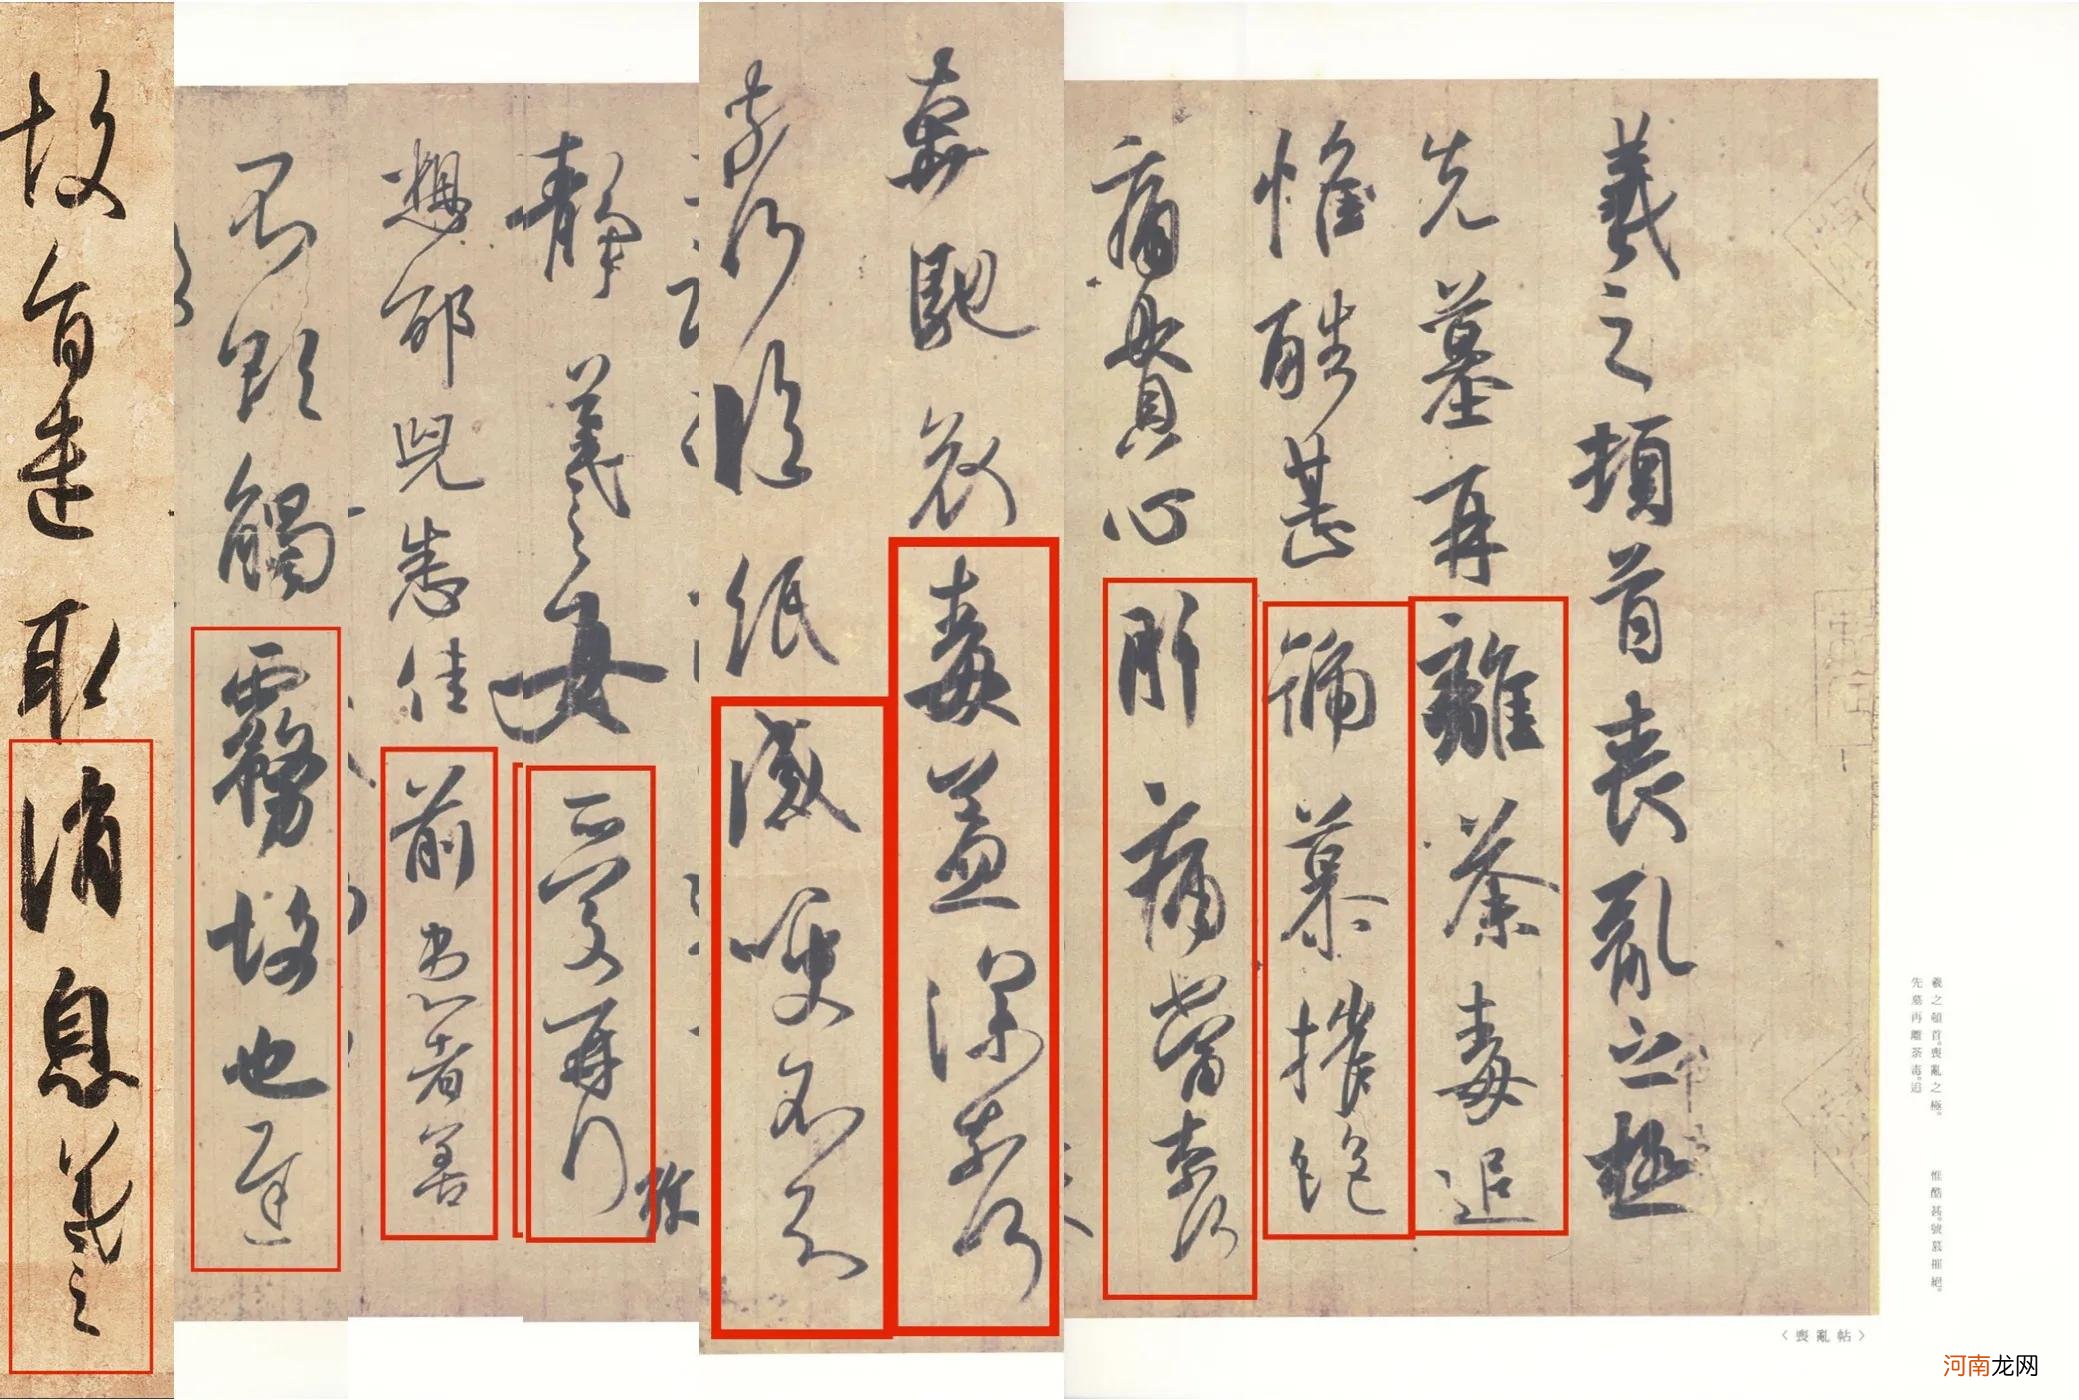 羲之頓首喪亂之極
先墓再離荼毒追
惟酷甚號慕摧絕
痛貫心肝痛當奈何
奔馳哀毒益深奈何
奈何臨紙感哽不知
靜羲之女愛再拜
想邵兒悉佳前患者善
不欲觸霧故也遲
故旨遣取消息羲之
羲之頓首。喪亂之極。
先墓再離荼毒。追
惟酷甚。號慕摧絕。
〈喪亂帖〉
河南龙网